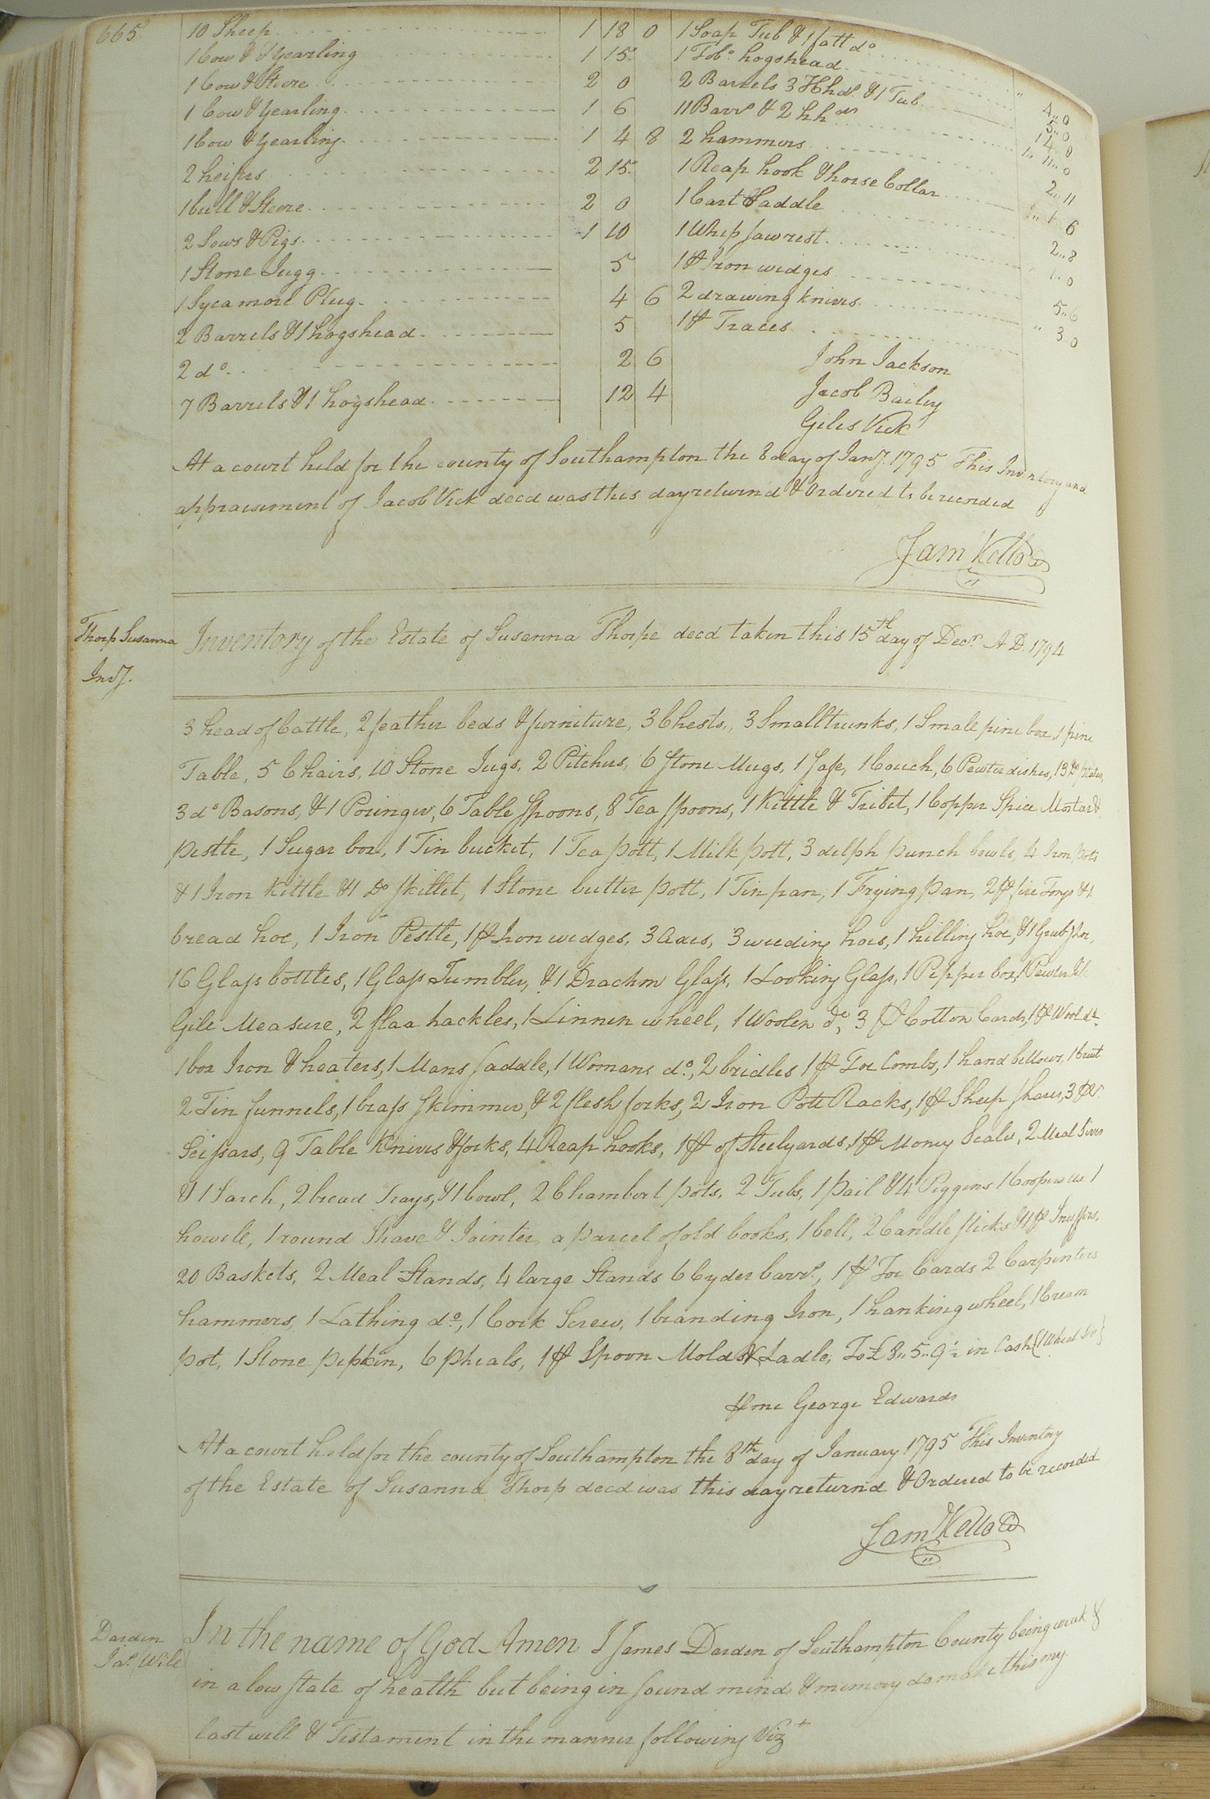 665
10 Sheep 1 18 0
1 Cow & Yearling 1 15
1 Cow & Steere 2 0
1 Cow & Yearling 1 6
1 Cow & Yearling 1 4 8
2 heifers 2 15
1 bull & Steere 2 0
2 Sows & Pigs 1 10
1 Stone Jugg 5
1 Sycamore Plug 4 6
2 Barrels & 1 hogshead 5
2 do 2 6
7 Barrels & 1 hogshead 12 4
1 Soap Tub & 1 fatt do
1 Tobo hogshead
2 Barrels 3 Hhds & 1 Tub
11 Barrs & 2 hhds
2 hammers
1 Reap hook & horse Collar 2.. 11
1 Cart Saddle 6
1 Whip saw rest 2..8
1 pr Iron wedges
2 drawing knives 5..6
1 pr Traces 3..0
John Jackson
Jacob Bailey
Giles Vick
At a court held for the county of Southampton the 8 day of Jany. 1795 This Inventory and
appraisement of Jacob Vick decd was this day returnd & Ordered to be recorded
Sam Kello Cl
Thorp Susanna
Invy.
Inventory of the Estate of Susanna Thorpe decd taken this 15th day of Decr. A D. 1794
3 head of Cattle, 2 feather beds & furniture, 3 Chests, 3 Small trunks, 1 Small pine box 1 pine
Table, 5 Chairs, 10 Stone Jugs, 2 Pitchers, 6 stone Mugs, 1 Safe, 1 Couch, 6 Pewter dishes, 13 do plates,
3 do Basons, & 1 Poringer, 6 Table Spoons, 8 Tea spoons, 1 Kittle & Tribet, 1 Copper Spice Mortar &
pestle, 1 Sugar box, 1 Tin bucket, 1 Tea pott, 1 Milk pott, 3 delph punch bowls, 4 Iron pots
& 1 Iron Kittle & 1 Do skillet, 1 Stone butter pott, 1 Tin pan, 1 Frying pan, 2 pr fire Tongs & 1
bread hoe, 1 Iron Pestle, 1 pr Iron wedges, 3 axes, 3 weeding hoes, 1 hilling hoe, & 1 Grub hoe,
16 Glass bottles, 1 Glass Tumbler, & 1 Drachm Glass, 1 Looking Glass, 1 Pepper box, 1 Pewter
Gile Measure, 2 flax hackles, 1 Linnen wheel, 1 Woolen do, 3 pr Cotton Cards, 1 pr Wool do.
1 box Iron & heaters, 1 Mans saddle, 1 Womans do., 2 bridles 1 pr Toe Combs, 1 hand bellows, 1
2 Tin funnels, 1 brass skimmer, & 2 flesh forks, 2 Iron Pott Racks, 1 pr Sheep shares, 3 pr
Scissars, 9 Table Knives & forks, 4 Reap hooks, 1 pr of steelyards, 1 pr Money Scales, 2 Meal Sives
& 1 Sarch, 2 bread Trays, & 1 bowl, 2 Chamber pots, 2 Tubs, 1 pail & 4 Piggins 1 Coopers ax 1
howell, 1 round Shave & Jointer, a parcel of old books, 1 bell, 2 Candle sticks & 1 pr Snuffers,
20 Baskets, 2 Meal Stands, 4 large Stands 6 Cyder barrs, 1 pr Toe Cards 2 Carpenters
hammers, 1 Lathing do., 1 Cork Screw, 1 branding Iron, 1 hanking wheel, 1 Cream
pot, 1 Stone pipkin, 6 phials, 1 pr Spoon Molds & Ladle, To £8..5..9½ in Cash
pr me George Edwards
At a court held for the county of Southampton the 8th day of January 1795 This Inventory
of the Estate of Susanna Thorp decd was this day returnd & Ordered to be recorded
Sam Kello Cl
Darden
Jas. Will
In the name of God Amen I James Darden of Southampton County being weak &
in a low state of health but being in sound mind & memory do make this my
last will & Testament in the manner following Vizt